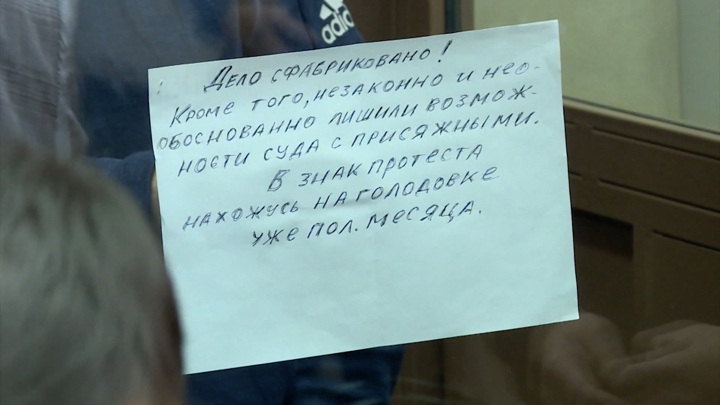 adidas
Дело сфабриковано!
Кроме того, незаконно и нео-
обоснованно лишили возмож-
ности суда с присяжными.
В знак протеста
нахожусь на голодовке
уже пол. месяца.